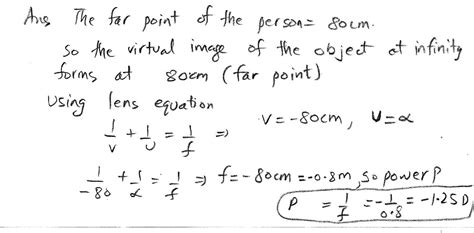 Ans The far point of the person = 80cm.
So the virtual image of the object at infinity
forms at 80cm (far point)
Using lens equation
1/v + 1/u = 1/f ⇒ v = -80cm, u = α
1/-80 + 1/α = 1/f ⇒ f = -80cm = -0.8m, so power P
P = 1/f = -1/0.8 = -1.25 D